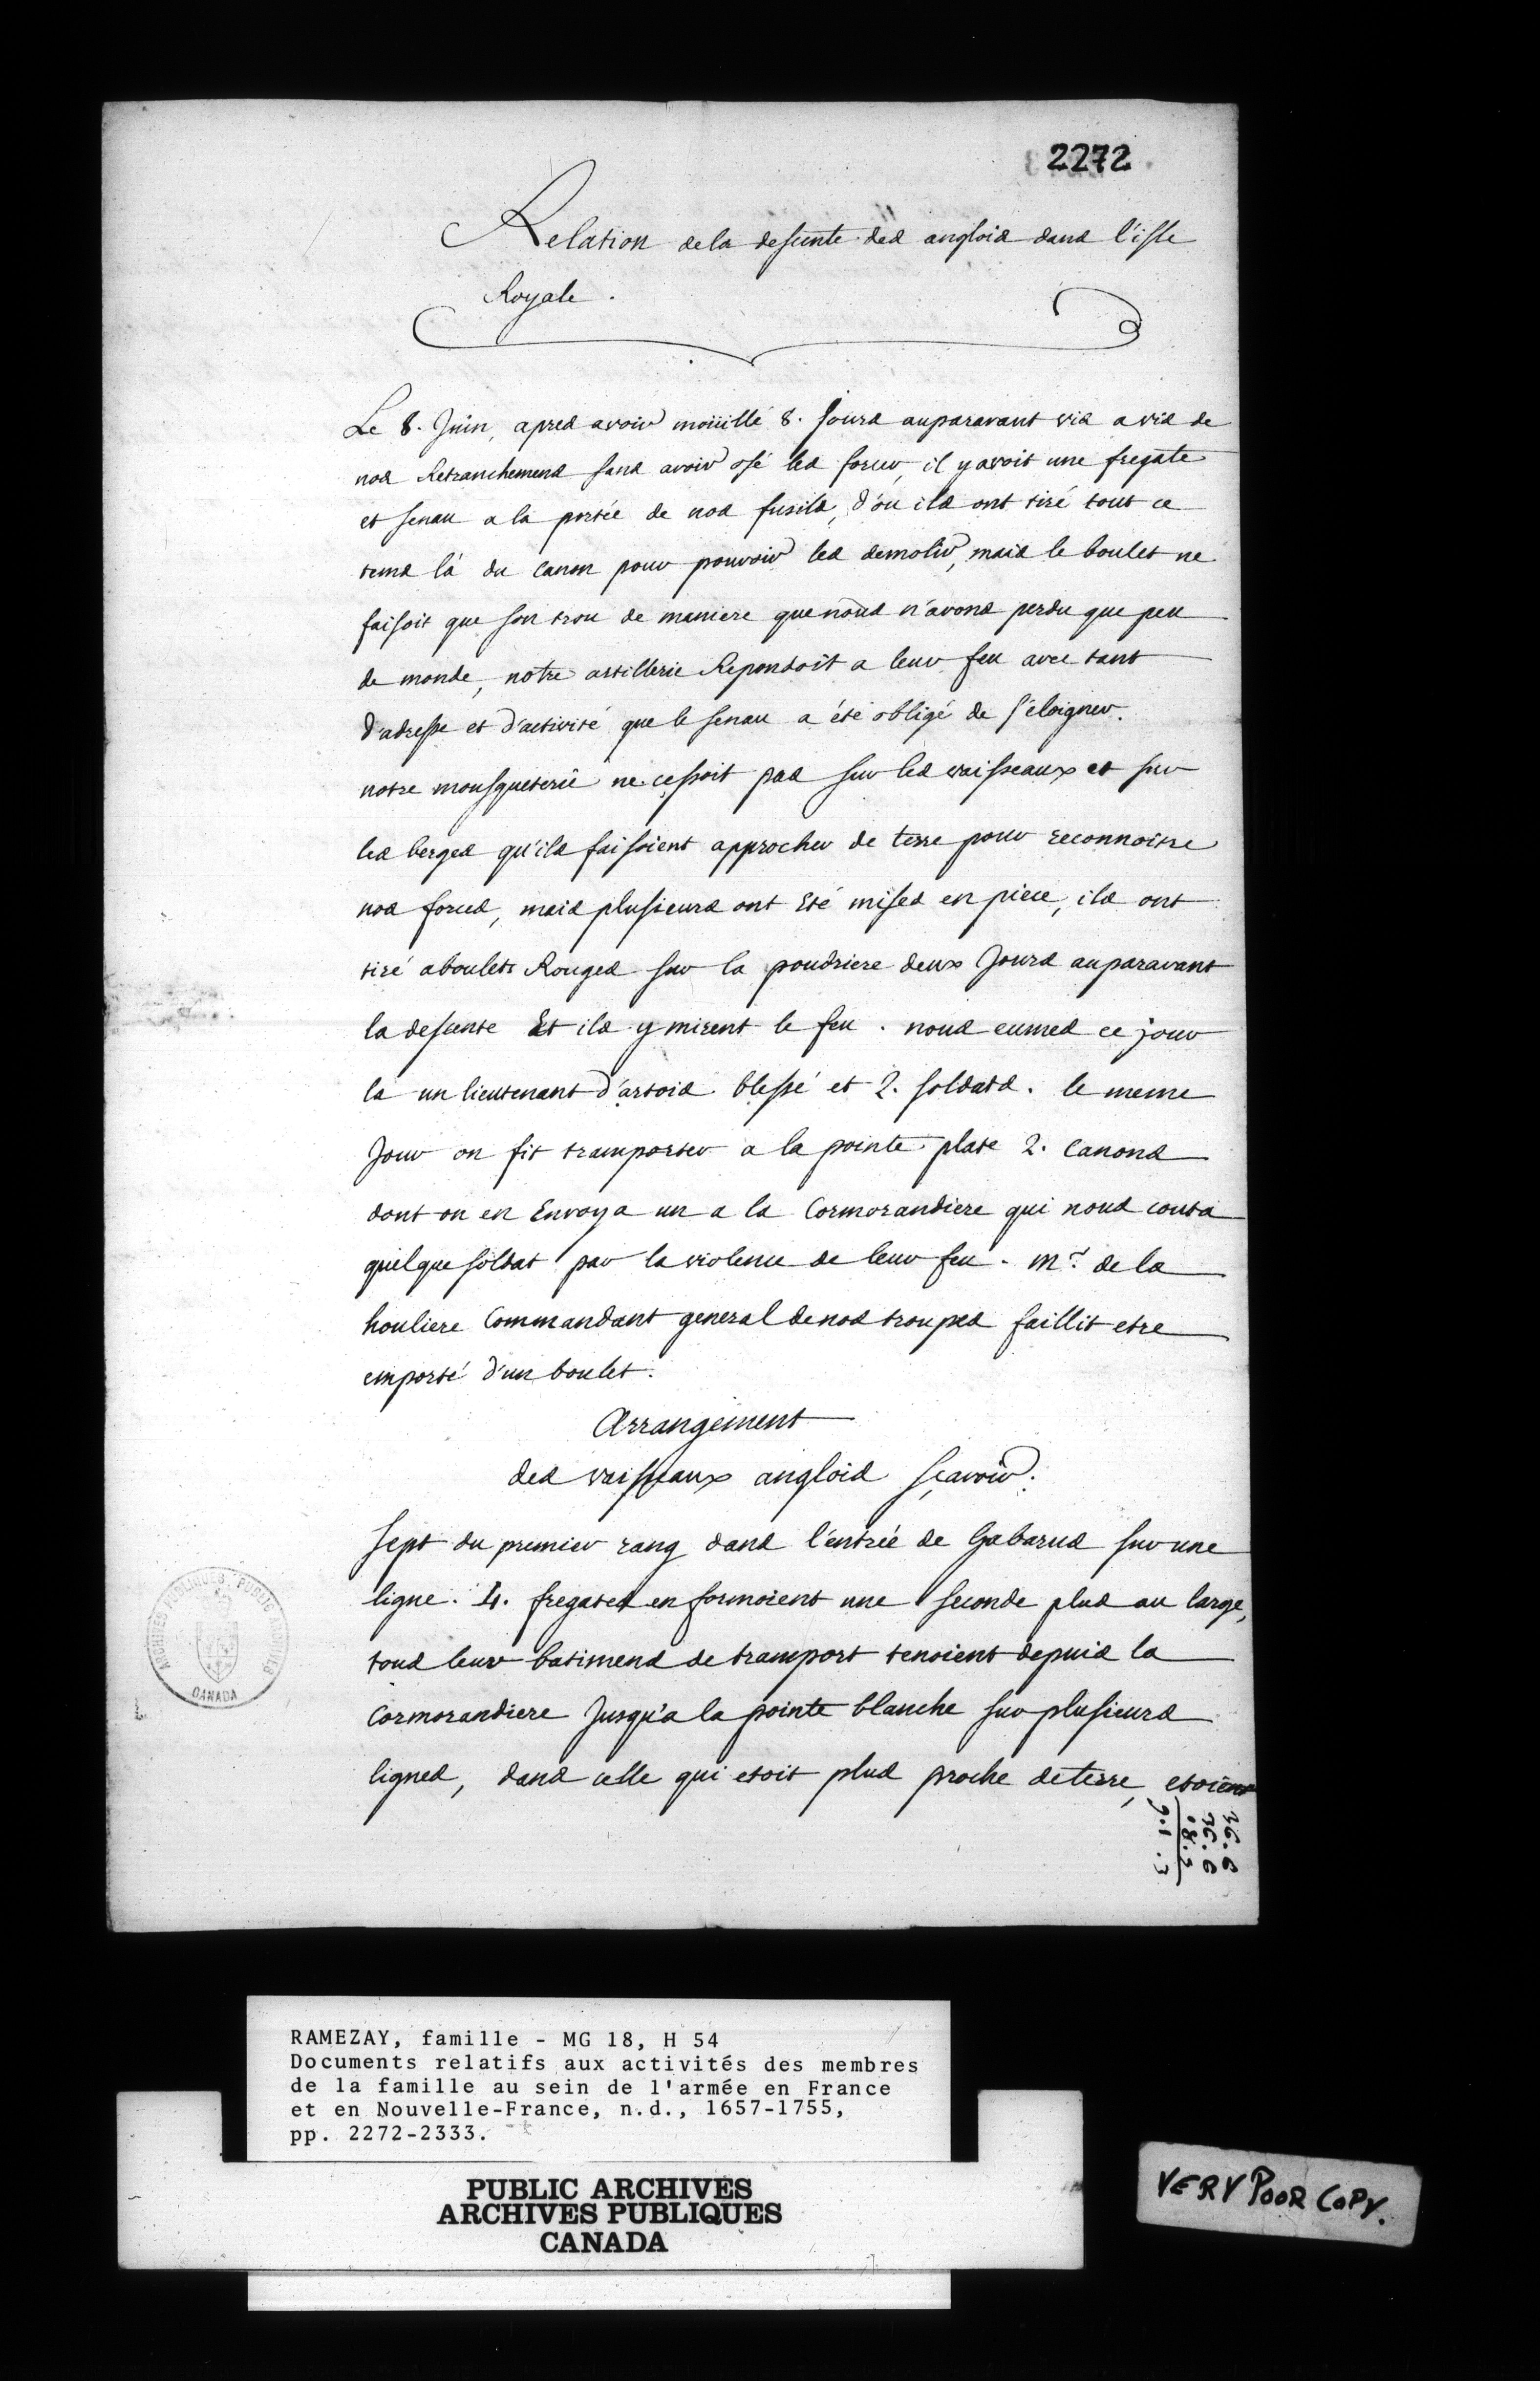 2272
Relation dela descente des anglois dans l'isle
Royale.
Le 8. Juin, apres avoir moüillé 8. Jours auparavant vis a vis de
nos Retranchemens sans avoir osé les forcer, il y avoit une fregate
et senau a la portée de nos fusils, d'ou ils ont tiré tout ce
tems là du canon pour pouvoir les demolir, mais le boulet ne
faisoit que son trou de maniere que nous n'avons perdu que peu
de monde, notre artillerie Repondoit a leur feu avec tant
d'adresse et d'activité que le senau a été obligé de s'eloigner.
notre mousqueterie ne cessoit pas sur les vaisseaux et sur
les berges qu'ils faisoient approcher de terre pour reconnoitre
nos forces, mais plusieurs ont Eté mises en piece, ils ont
tiré aboulets Rouges sur la poudriere deux Jours auparavant
la descente Et ils y mirent le feu. nous eumes ce jour
la un lieutenant d'artois blessé et 2. soldats. le meme
Jour on fit transporter a la pointe plate 2. canons
dont on en Envoya un a la Cormorandiere qui nous couta
quelque soldat par la violence de leur feu. Mr. de la
houliere Commandant general de nos troupes faillit etre
emporté d'un boulet.
Arrangement
des vaisseaux anglois sçavoir.
Sept du premier rang dans l'entrée de Gabarus sur une
ligne. 4. fregates en formoient une seconde plus au large,
tous leur batimens de transport tenoient depuis la
Cormorandiere Jusqu'a la pointe blanche sur plusieurs
lignes, dans celle qui etoit plus proche de terre, etoient
36.6
36.6
18.3
9.1.3
ARCHIVES PUBLIQUES · PUBLIC ARCHIVES
CANADA
RAMEZAY, famille - MG 18, H 54
Documents relatifs aux activités des membres
de la famille au sein de l'armée en France
et en Nouvelle-France, n.d., 1657-1755,
pp. 2272-2333.
PUBLIC ARCHIVES
ARCHIVES PUBLIQUES
CANADA
VERY POOR COPY.